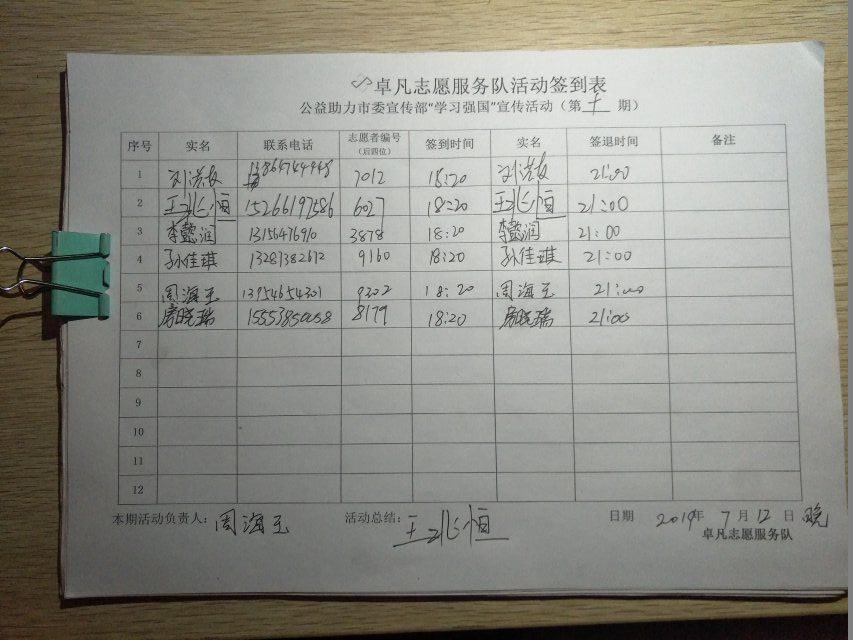 卓凡志愿服务队活动签到表
公益助力市委宣传部“学习强国”宣传活动（第 十 期）
序号 实名 联系电话 志愿者编号（后四位） 签到时间 实名 签退时间 备注
1 7012 18:20 21:00
2 王兆恒 15266197586 6027 18:20 王兆恒 21:00
3 李懿润 13156476910 3878 18:20 李懿润 21:00
4 孙佳琪 13281382612 9160 18:20 孙佳琪 21:00
5 周海玉 13954654301 9202 18:20 周海玉 21:00
6 8179 18:20 21:00
7
8
9
10
11
12
本期活动负责人：周海玉 活动总结：王兆恒 日期 2019年 7月12日 晚
卓凡志愿服务队